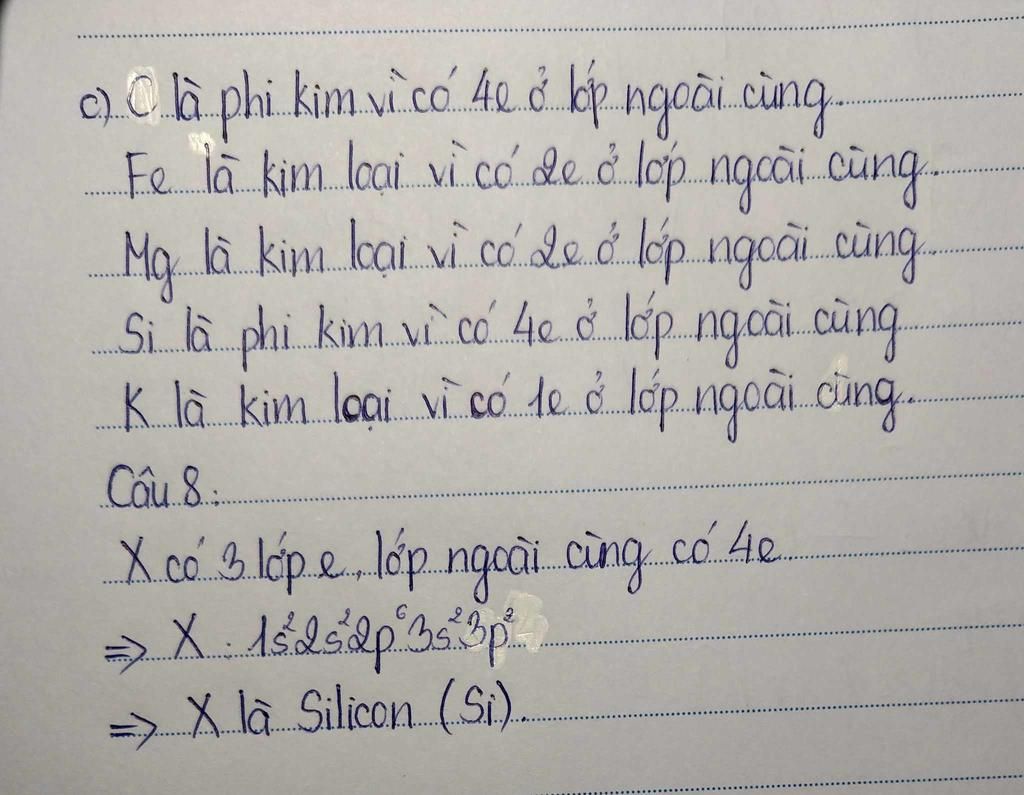 c) C là phi kim vì có 4e ở lớp ngoài cùng.
Fe là kim loại vì có 2e ở lớp ngoài cùng.
Mg là kim loại vì có 2e ở lớp ngoài cùng.
Si là phi kim vì có 4e ở lớp ngoài cùng
K là kim loại vì có 1e ở lớp ngoài cùng.
Câu 8:
X có 3 lớp e, lớp ngoài cùng có 4e
⇒ X : 1s²2s²2p⁶3s²3p²
⇒ X là Silicon (Si).